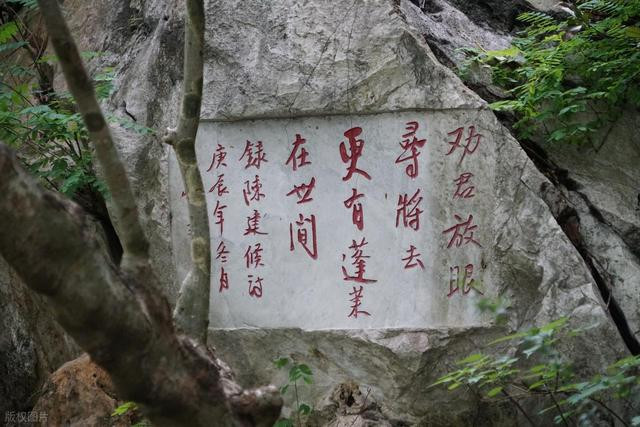 劝君放眼
尋将去
更有蓬莱
在世间
錄陳建候诗
庚辰年冬月
版权图片